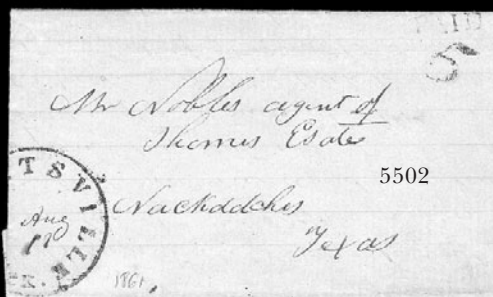 PAID
5
Mr Nobles agent of
Thomis Esate
5502
Nackddches
Texas
TSVILLE
Aug
1861